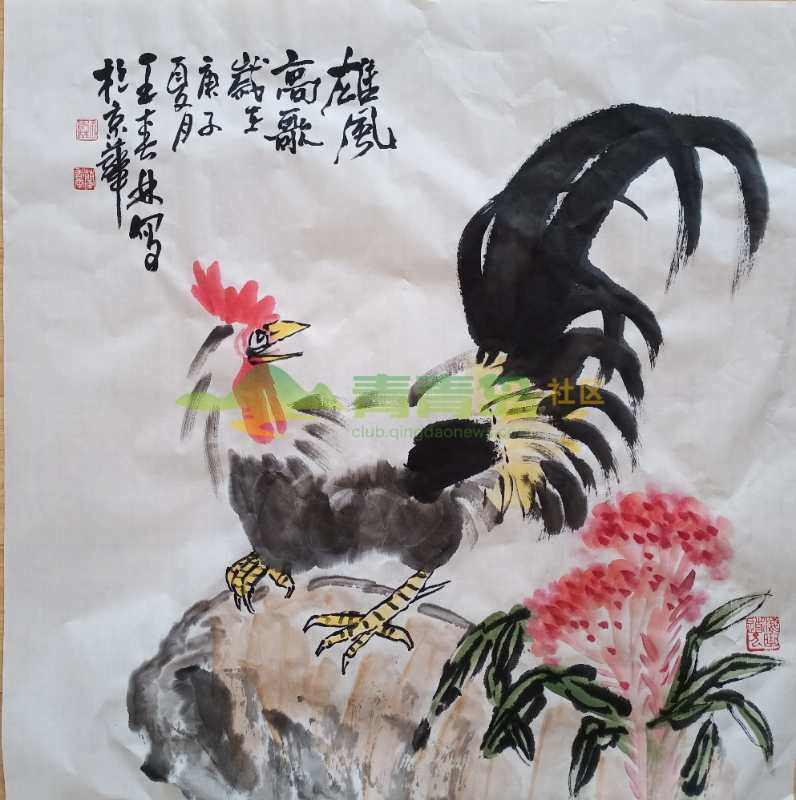 雄风
高歌
岁在
庚子
夏月
王春林写
于京华
青青岛社区
club.qingdaonews.com